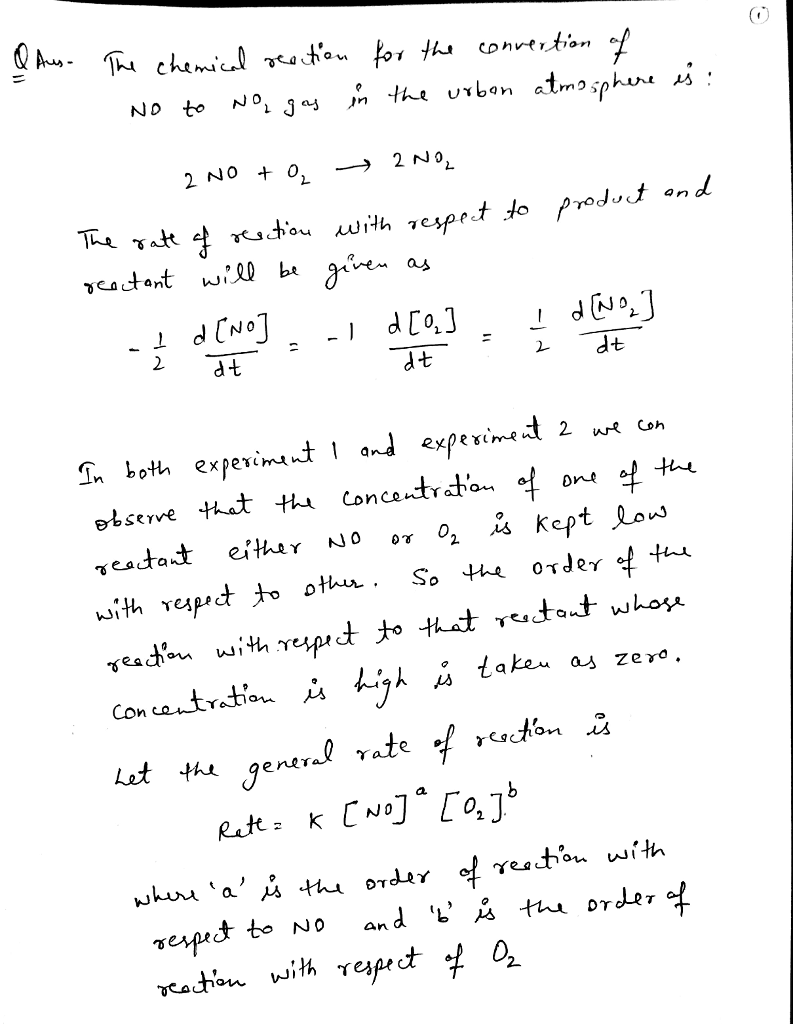 ①
Q Ans- The chemical reaction for the convertion of
NO to NO₂ gas in the urban atmosphere is :
2 NO + O₂ → 2 NO₂
The rate of reaction with respect to product and
reactant will be given as
- 1/2 d[NO]/dt = -1 d[O₂]/dt = 1/2 d[NO₂]/dt
In both experiment 1 and experiment 2 we can
observe that the concentration of one of the
reactant either NO or O₂ is kept low
with respect to other. So the order of the
reaction with respect to that reactant whose
concentration is high is taken as zero.
Let the general rate of reaction is
Rate = K [NO]ᵃ [O₂]ᵇ
where 'a' is the order of reaction with
respect to NO and 'b' is the order of
reaction with respect of O₂